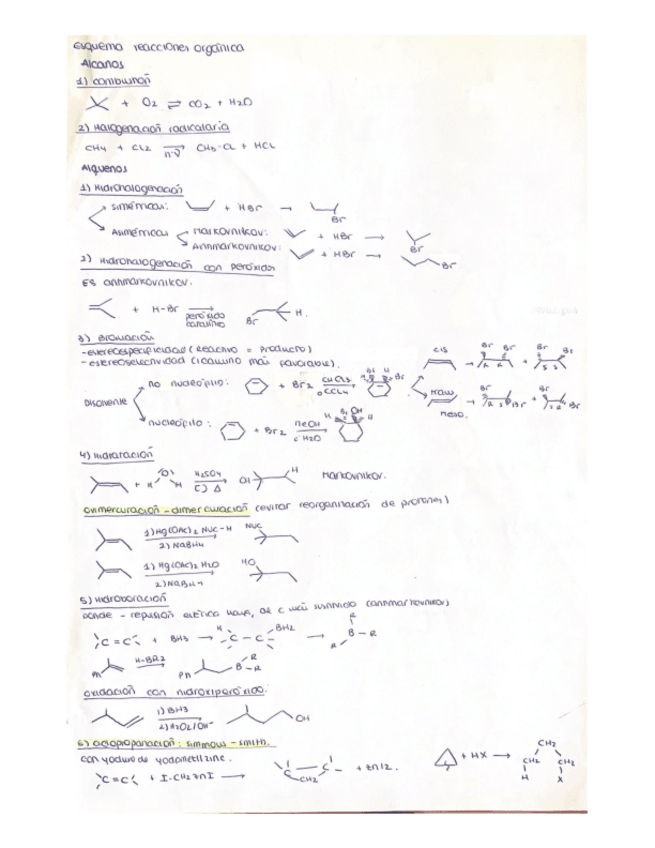 Esquema reacciones orgánica
Alcanos
1) combustión
+ O2 ⇌ CO2 + H2O
2) Halogenación radicalaria
CH4 + Cl2 → CH3-Cl + HCl
h·ν
Alquenos
1) Hidrohalogenación
simétricos: + HBr →
Br
Asimétricos
Markovnikov: + HBr →
Br
Antimarkovnikov: + HBr → Br
2) Hidrohalogenación con peróxidos
Es antimarkovnikov.
+ H-Br → Br H.
peróxido
3) Bromación
-estereoespecificidad (Reactivo = producto)
-estereoselectividad (1 camino más favorable).
cis
Br Br Br Br
Disolvente
no nucleófilo: + Br2 CHCl3
o CCl4
trans
meso.
nucleófilo: + Br2 MeOH
o H2O
4) Hidratación
H2SO4
Δ
OH H Markovnikov.
Oximercuración - dimercuración (evitar reorganización de protones)
1) Hg(OAc)2 Nuc-H
2) NaBH4
Nuc
1) Hg(OAc)2 H2O
2) NaBH4
HO
5) Hidroboración
C=C + BH3 → H C-C BH2 → R B-R R
Ph H-BR2 Ph B R R
oxidación con hidroxiperóxido.
1) BH3
2) H2O2/OH-
OH
6) ciclopropanación: simmons-smith.
con yoduro de yodometilzinc.
C=C + I-CH2ZnI → C-C CH2 + ZnI2.
+ HX → CH2 CH2 CH2 H X